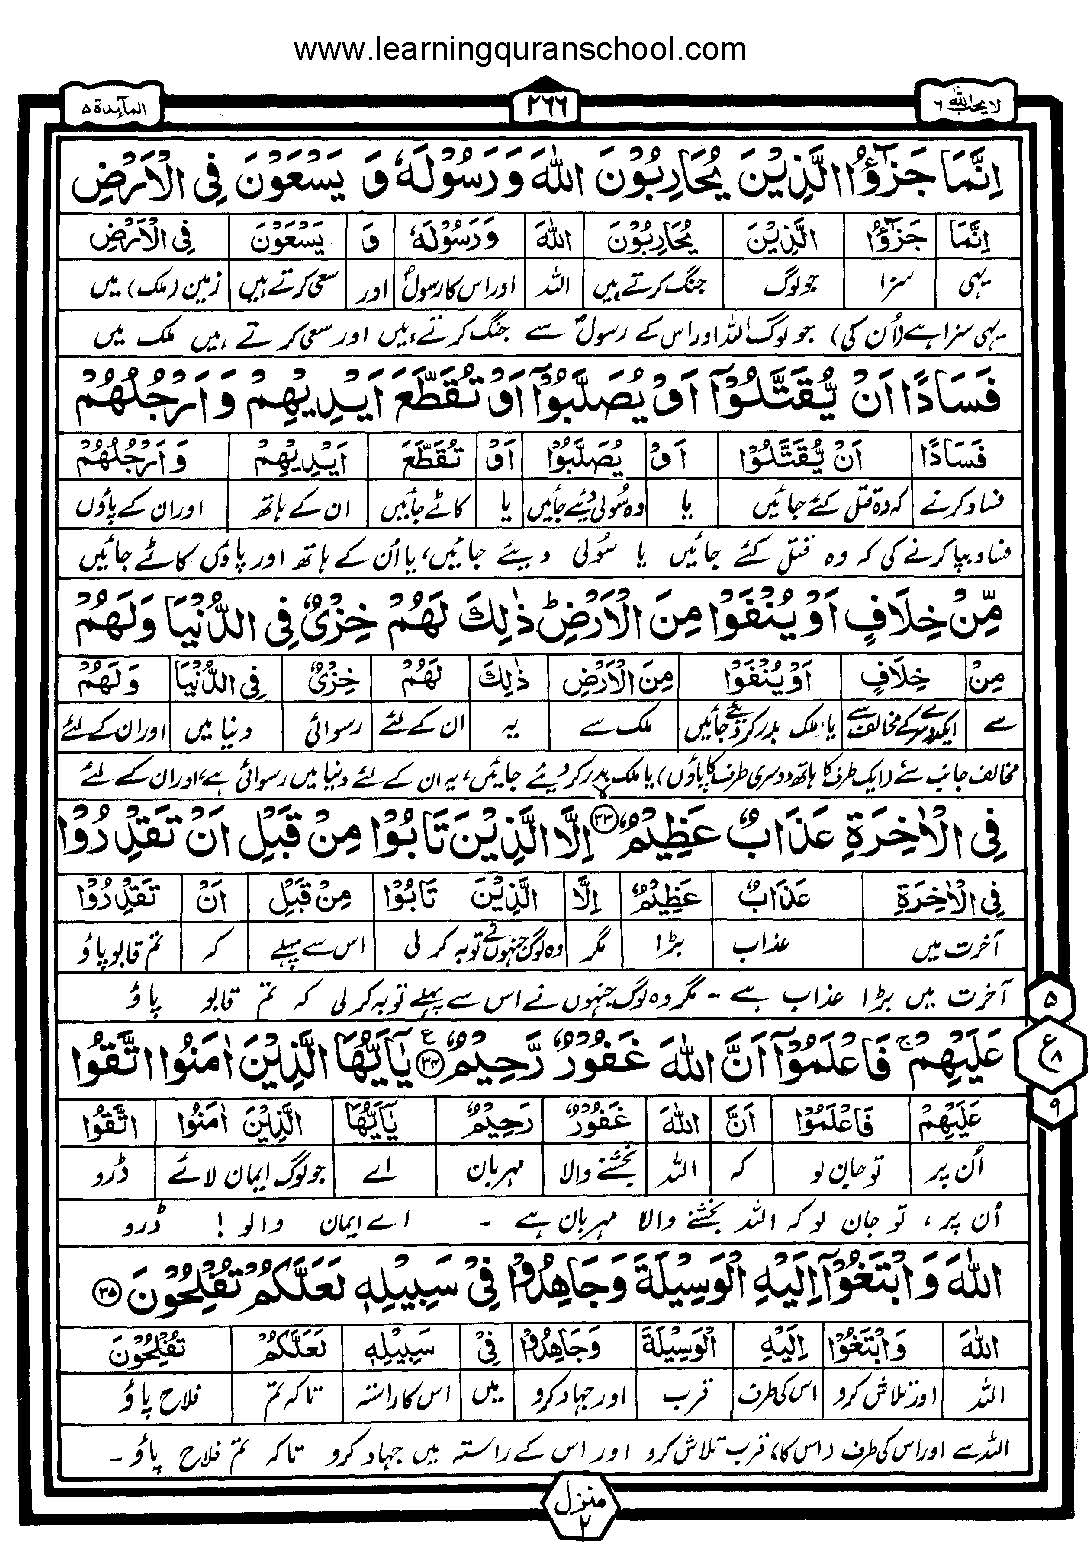 www.learningquranschool.com
لا يحب الله ٦
٢٦٦
المآئدة ٥
اِنَّمَا جَزٰٓؤُا الَّذِیْنَ یُحَارِبُوْنَ اللّٰهَ وَ رَسُوْلَهٗ وَ یَسْعَوْنَ فِی الْاَرْضِ
اِنَّمَا جَزٰٓؤُا الَّذِیْنَ یُحَارِبُوْنَ اللّٰهَ وَرَسُوْلَهٗ وَ یَسْعَوْنَ فِی الْاَرْضِ
یہی سزا جو لوگ جنگ کرتے ہیں اللہ اور اس کا رسولؐ اور سعی کرتے ہیں زمین (ملک) میں
یہی سزا ہے (اُن کی) جو لوگ اللہ اور اس کے رسولؐ سے جنگ کرتے ہیں اور سعی کرتے ہیں ملک میں
فَسَادًا اَنْ یُّقَتَّلُوْۤا اَوْ یُصَلَّبُوْۤا اَوْ تُقَطَّعَ اَیْدِیْهِمْ وَ اَرْجُلُهُمْ
فَسَادًا اَنْ یُّقَتَّلُوْۤا اَوْ یُصَلَّبُوْۤا اَوْ تُقَطَّعَ اَیْدِیْهِمْ وَ اَرْجُلُهُمْ
فساد کرنے کہ وہ قتل کئے جائیں یا وہ سُولی دیئے جائیں یا کاٹے جائیں ان کے ہاتھ اور ان کے پاؤں
فساد بپا کرنے کی کہ وہ قتل کئے جائیں یا سُولی دیئے جائیں، یا اُن کے ہاتھ اور پاؤں کاٹے جائیں
مِّنْ خِلَافٍ اَوْ یُنْفَوْا مِنَ الْاَرْضِ ؕ ذٰلِكَ لَهُمْ خِزْیٌ فِی الدُّنْیَا وَ لَهُمْ
مِنْ خِلَافٍ اَوْ یُنْفَوْا مِنَ الْاَرْضِ ذٰلِكَ لَهُمْ خِزْیٌ فِی الدُّنْیَا وَ لَهُمْ
سے ایکدوسرے کے مخالف سے یا، ملک بدر کر دیئے جائیں ملک سے یہ ان کے لئے رسوائی دنیا میں اور ان کے لئے
مخالف جانب سے (ایک طرف کا ہاتھ دوسری طرف کا پاؤں) یا ملک بدر کر دیئے جائیں، یہ ان کے لئے دنیا میں رسوائی ہے، اور ان کے لئے
فِی الْاٰخِرَةِ عَذَابٌ عَظِیْمٌ ۙ﴿۳۳﴾ اِلَّا الَّذِیْنَ تَابُوْا مِنْ قَبْلِ اَنْ تَقْدِرُوْا
فِی الْاٰخِرَةِ عَذَابٌ عَظِیْمٌ اِلَّا الَّذِیْنَ تَابُوْا مِنْ قَبْلِ اَنْ تَقْدِرُوْا
آخرت میں عذاب بڑا مگر وہ لوگ جنہوں نے توبہ کر لی اس سے پہلے کہ تم قابو پاؤ
آخرت میں بڑا عذاب ہے - مگر وہ لوگ جنہوں نے اس سے پہلے توبہ کر لی کہ تم قابو پاؤ
٥
ع
٨
٩
عَلَیْهِمْ ۚ فَاعْلَمُوْۤا اَنَّ اللّٰهَ غَفُوْرٌ رَّحِیْمٌ ﴿۳۴﴾ ع یٰۤاَیُّهَا الَّذِیْنَ اٰمَنُوا اتَّقُوا
عَلَیْهِمْ فَاعْلَمُوْۤا اَنَّ اللّٰهَ غَفُوْرٌ رَحِیْمٌ یٰۤاَیُّهَا الَّذِیْنَ اٰمَنُوا اتَّقُوا
اُن پر تو جان لو کہ اللہ بخشنے والا مہربان اے جو لوگ ایمان لائے ڈرو
اُن پر، تو جان لو کہ اللہ بخشنے والا مہربان ہے - اے ایمان والو! ڈرو
اللّٰهَ وَ ابْتَغُوْۤا اِلَیْهِ الْوَسِیْلَةَ وَ جَاهِدُوْا فِیْ سَبِیْلِهٖ لَعَلَّكُمْ تُفْلِحُوْنَ ﴿۳۵﴾
اللّٰهَ وَ ابْتَغُوْۤا اِلَیْهِ الْوَسِیْلَةَ وَ جَاهِدُوْا فِیْ سَبِیْلِهٖ لَعَلَّكُمْ تُفْلِحُوْنَ
اللہ اور تلاش کرو اس کی طرف قرب اور جہاد کرو میں اس کا راستہ تاکہ تم فلاح پاؤ
اللہ سے اور اس کی طرف (اس کا) قرب تلاش کرو اور اس کے راستہ میں جہاد کرو تاکہ تم فلاح پاؤ -
منزل
٢